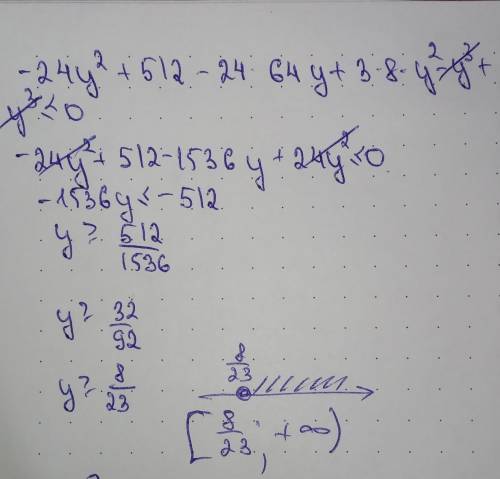 -24y² + 512 - 24 · 64y + 3 · 8 · y² - y³ +
y³ ≤ 0
-24y² + 512 - 1536y + 24y² ≤ 0
-1536y ≤ -512
y ≥ 512/1536
y ≥ 32/92
y ≥ 8/23
8/23
[8/23; +∞)